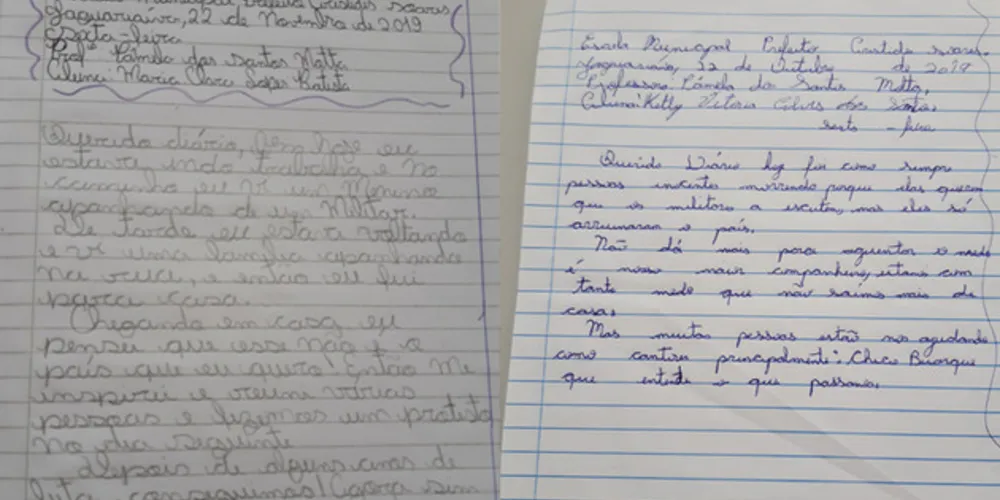 Jaguariaíva, 22 de Novembro de 2019
Sexta-feira
Profª Pâmela dos Santos Matta
Aluna: Maria Clara Batista
Querido diário, bem hoje eu
estava indo trabalhar e no
caminho eu vi um Menino
apanhando de um Militar.
De tarde eu estava voltando
e vi uma família apanhando
na rua, e então eu fui
para casa.
Chegando em casa eu
pensei que esse não é o
país que eu quero! Então me
inspirei e reuni várias
pessoas e fizemos um protesto
no dia seguinte
depois de alguns anos de
luta conseguimos! Agora sim
Escola Municipal Prefeito
Jaguariaíva, de Outubro de 2019
Professora: Pâmela dos Santos Matta.
Aluna: Kelly Vitória dos Santos
sexta - feira
Querido Diário hoje foi como sempre
pessoas inocentes morrendo porque elas querem
que os militares a escutem, mas eles só
arruinaram o país.
Não dá mais para aguentar o medo
é nosso maior companheiro, estamos com
tanto medo que não saímos mais de
casa.
Mas muitas pessoas estão nos ajudando
como cantores principalmente: Chico Buarque
que entende o que passamos.